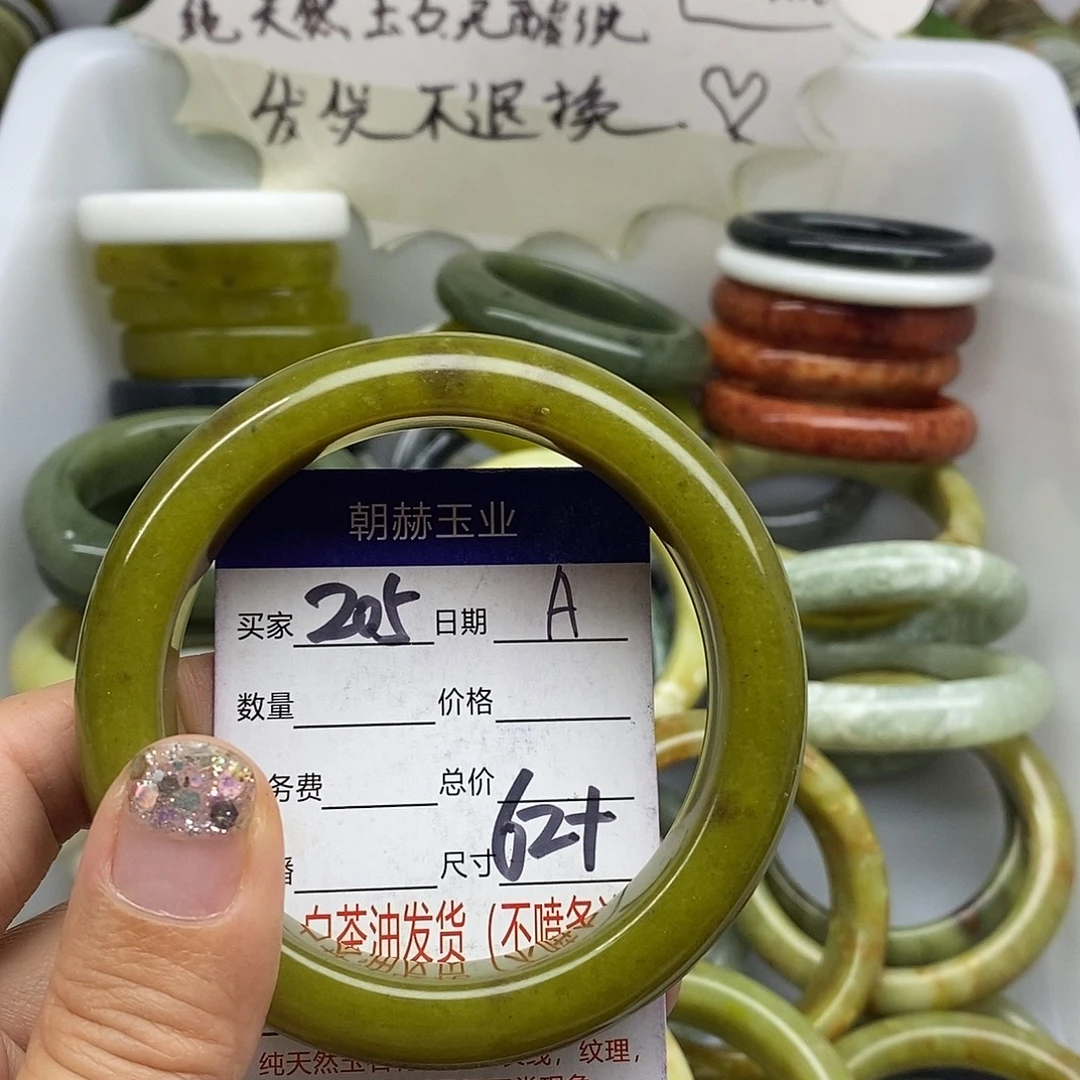 纯天然玉石无酸洗
发货不退换
朝赫玉业
买家 205 日期 A
数量 价格
务费 总价
尺寸 62+
白茶油发货（不喷
纯天然玉石 纹理，